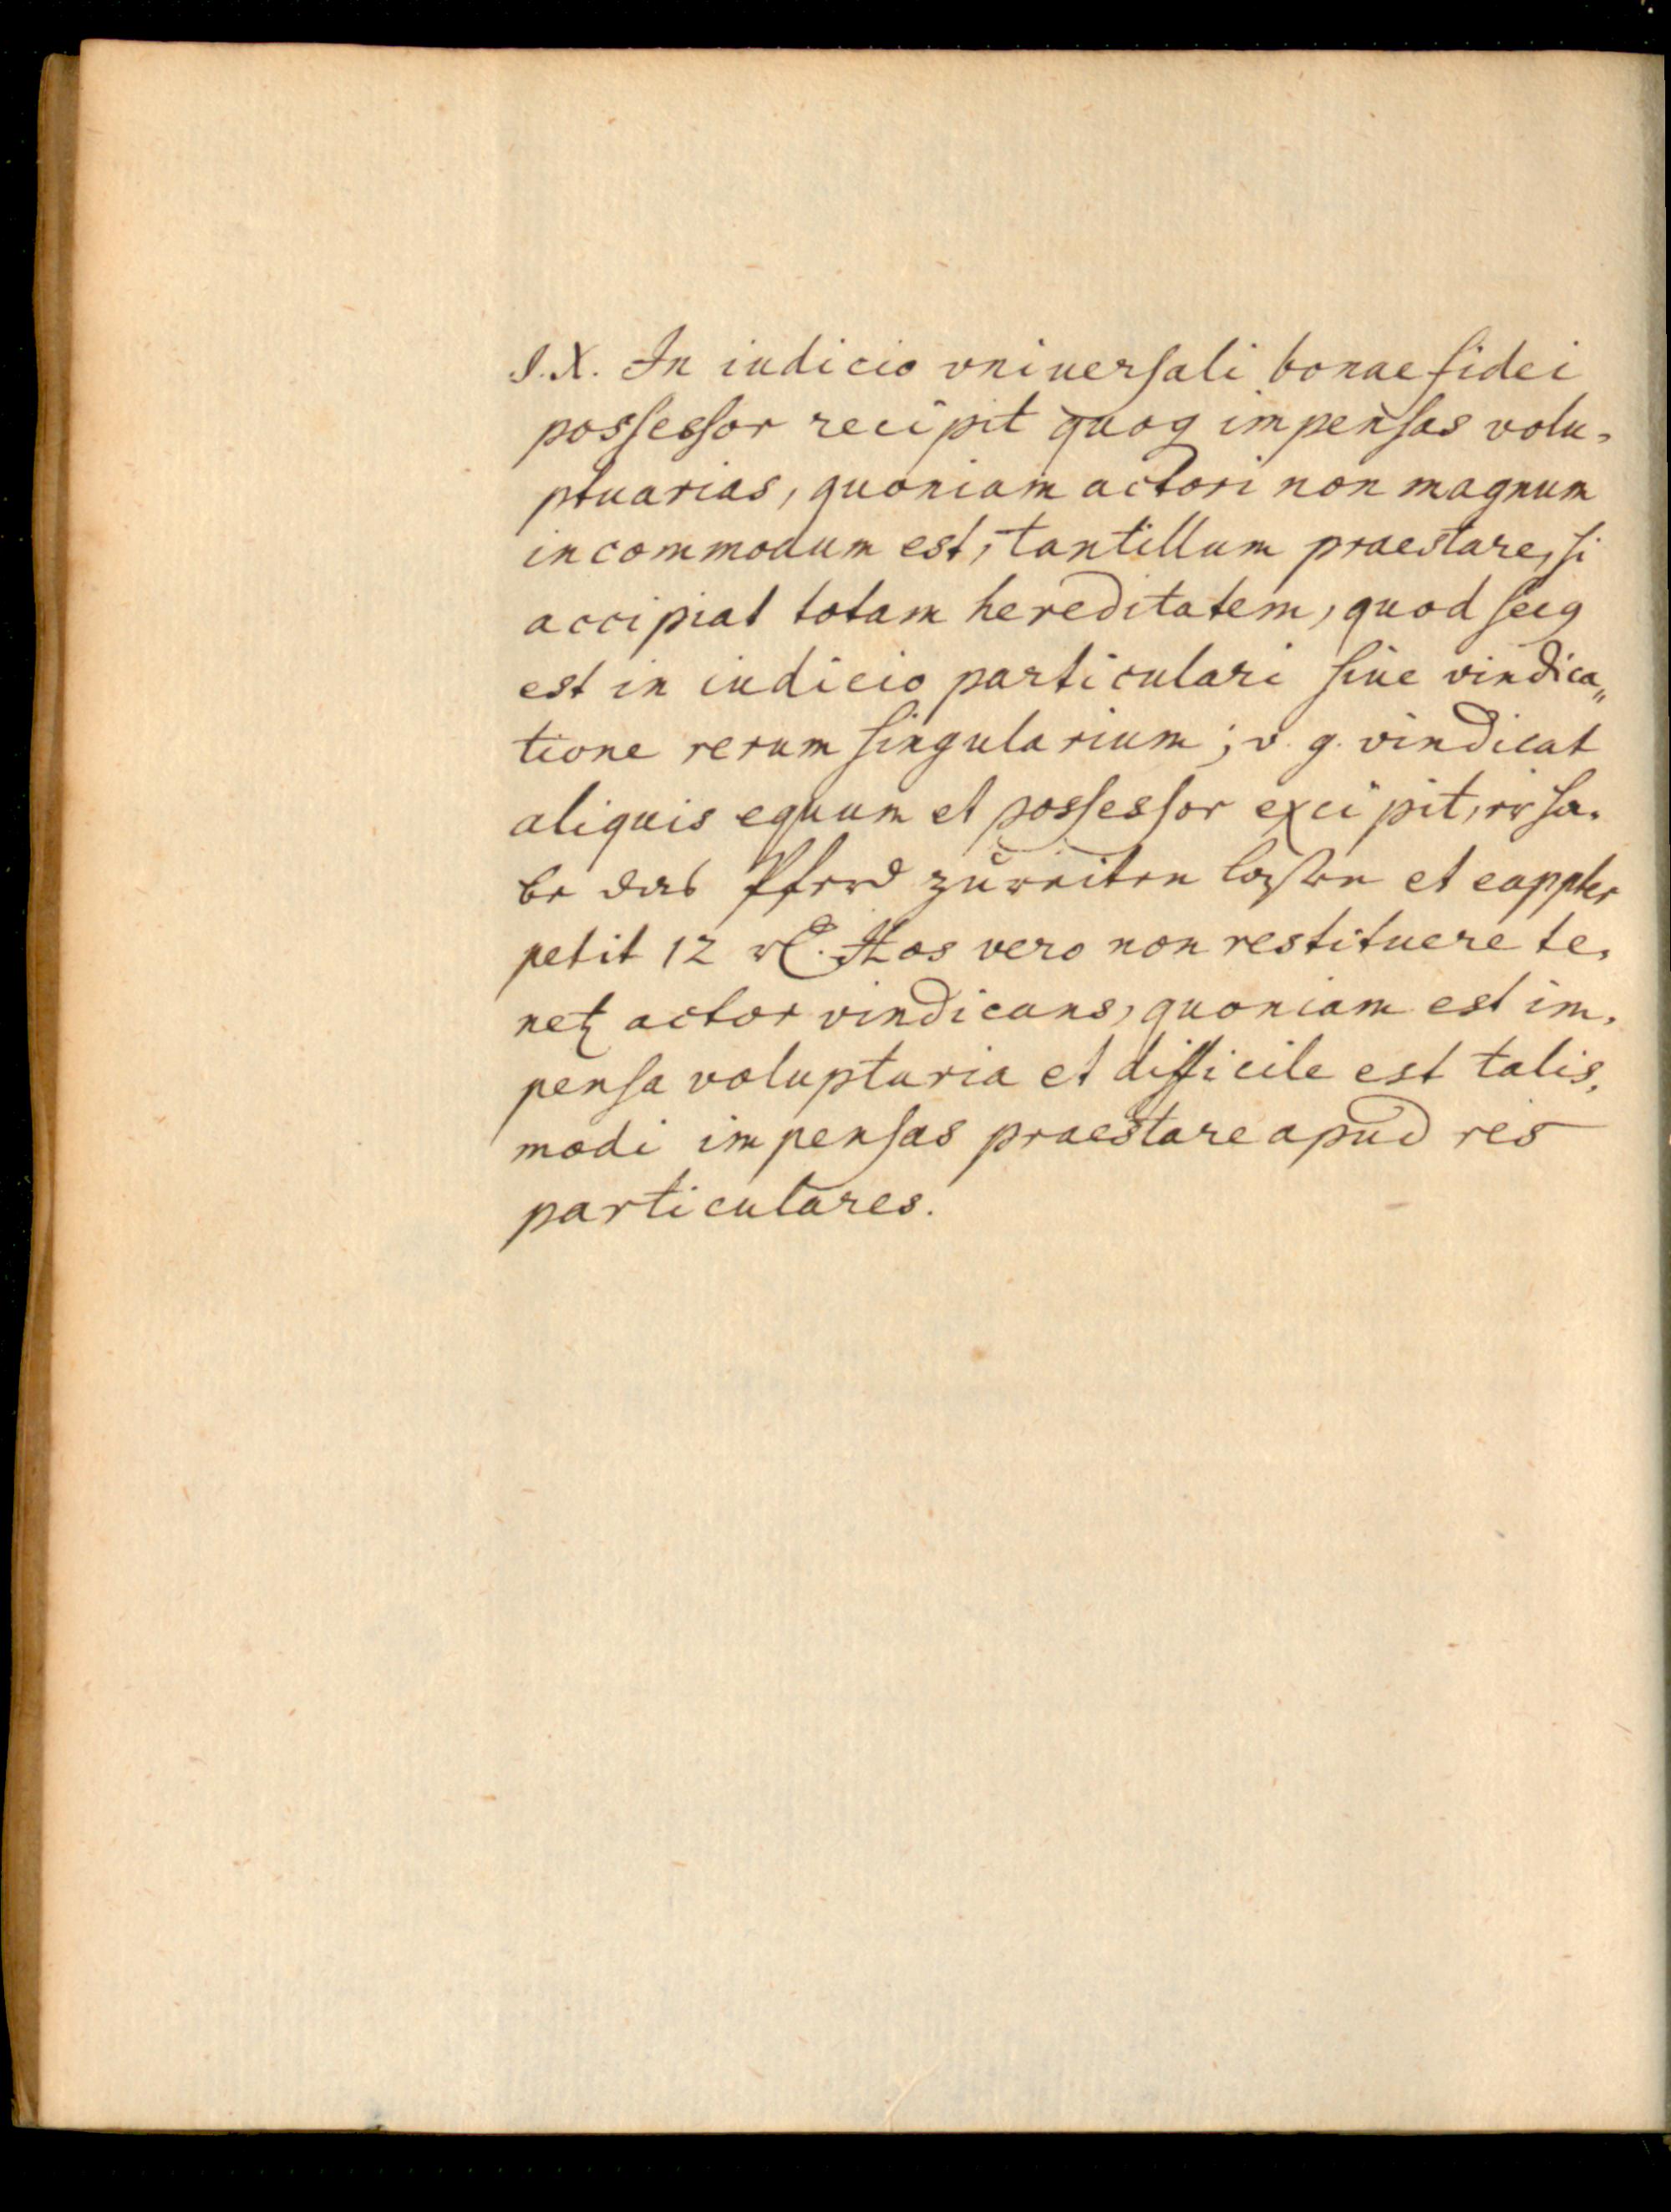 §. X. In iudicio vniuerſali bonae fidei
posſesſor recipit quoq impenſas volu-
ptuarias, quoniam actori non magnum
incommodum est, tantillum praestare, ſi
accipiat totam hereditatem, quod ſecq
est in iudicio particulari ſiue vindica„
tione rerum ſingularium; v. g. vindicat
aliquis equum et posſesſor excipit, er ha-
be das Pferd zureiten laßen et eappter
petit 12 rl. Hos vero non restituere te-
netꝫ actor vindicans, quoniam est im-
penſa volupturia et difficile est talis-
modi impenſas praestare apud res
particulares.